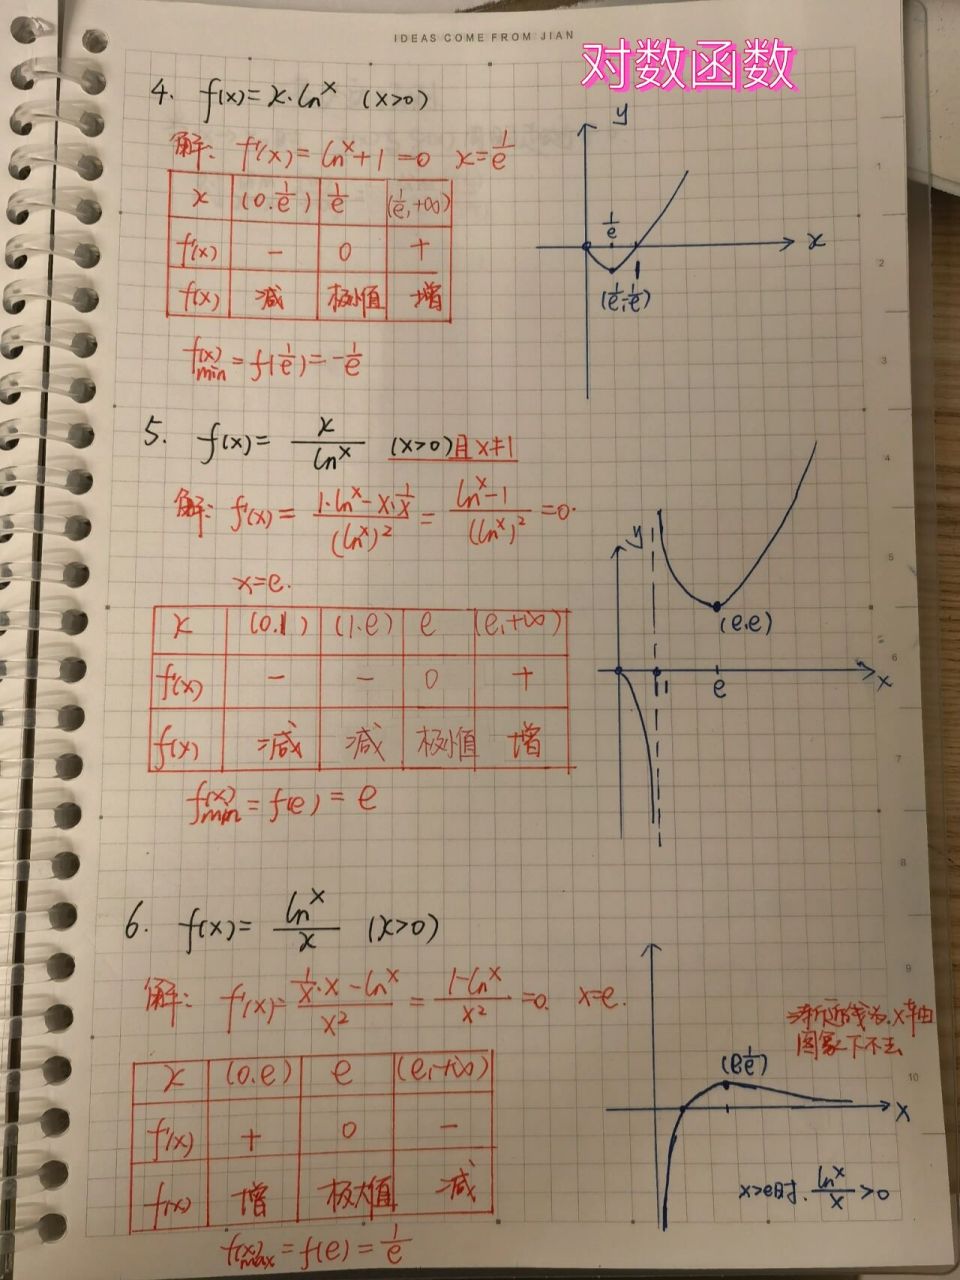 IDEAS COME FROM JIAN
对数函数
4. f(x)=x·ln^x (x>0)
解: f'(x)=ln^x+1=0 x=1/e
x (0.1/e) 1/e (1/e,+∞)
f'(x) - 0 +
f(x) 减 极小值 增
f(x)min=f(1/e)=-1/e
y
x
1/e
1
(1/e,-1/e)
5. f(x)=x/ln^x (x>0)且x≠1
解: f'(x)=(1·ln^x-x·1/x)/(ln^x)^2=(ln^x-1)/(ln^x)^2=0.
x=e.
x (0.1) (1.e) e (e,+∞)
f'(x) - - 0 +
f(x) 减 减 极小值 增
f(x)min=f(e)=e
y
(e.e)
1 e x
6. f(x)=ln^x/x (x>0)
解: f'(x)=(1/x·x-ln^x)/x^2=(1-ln^x)/x^2=0. x=e.
x (0.e) e (e,+∞)
f'(x) + 0 -
f(x) 增 极大值 减
f(x)max=f(e)=1/e
渐近线为.x轴
图象下不去
(e,1/e)
x
x>e时.ln^x/x>0
1
2
3
4
5
6
7
8
9
10